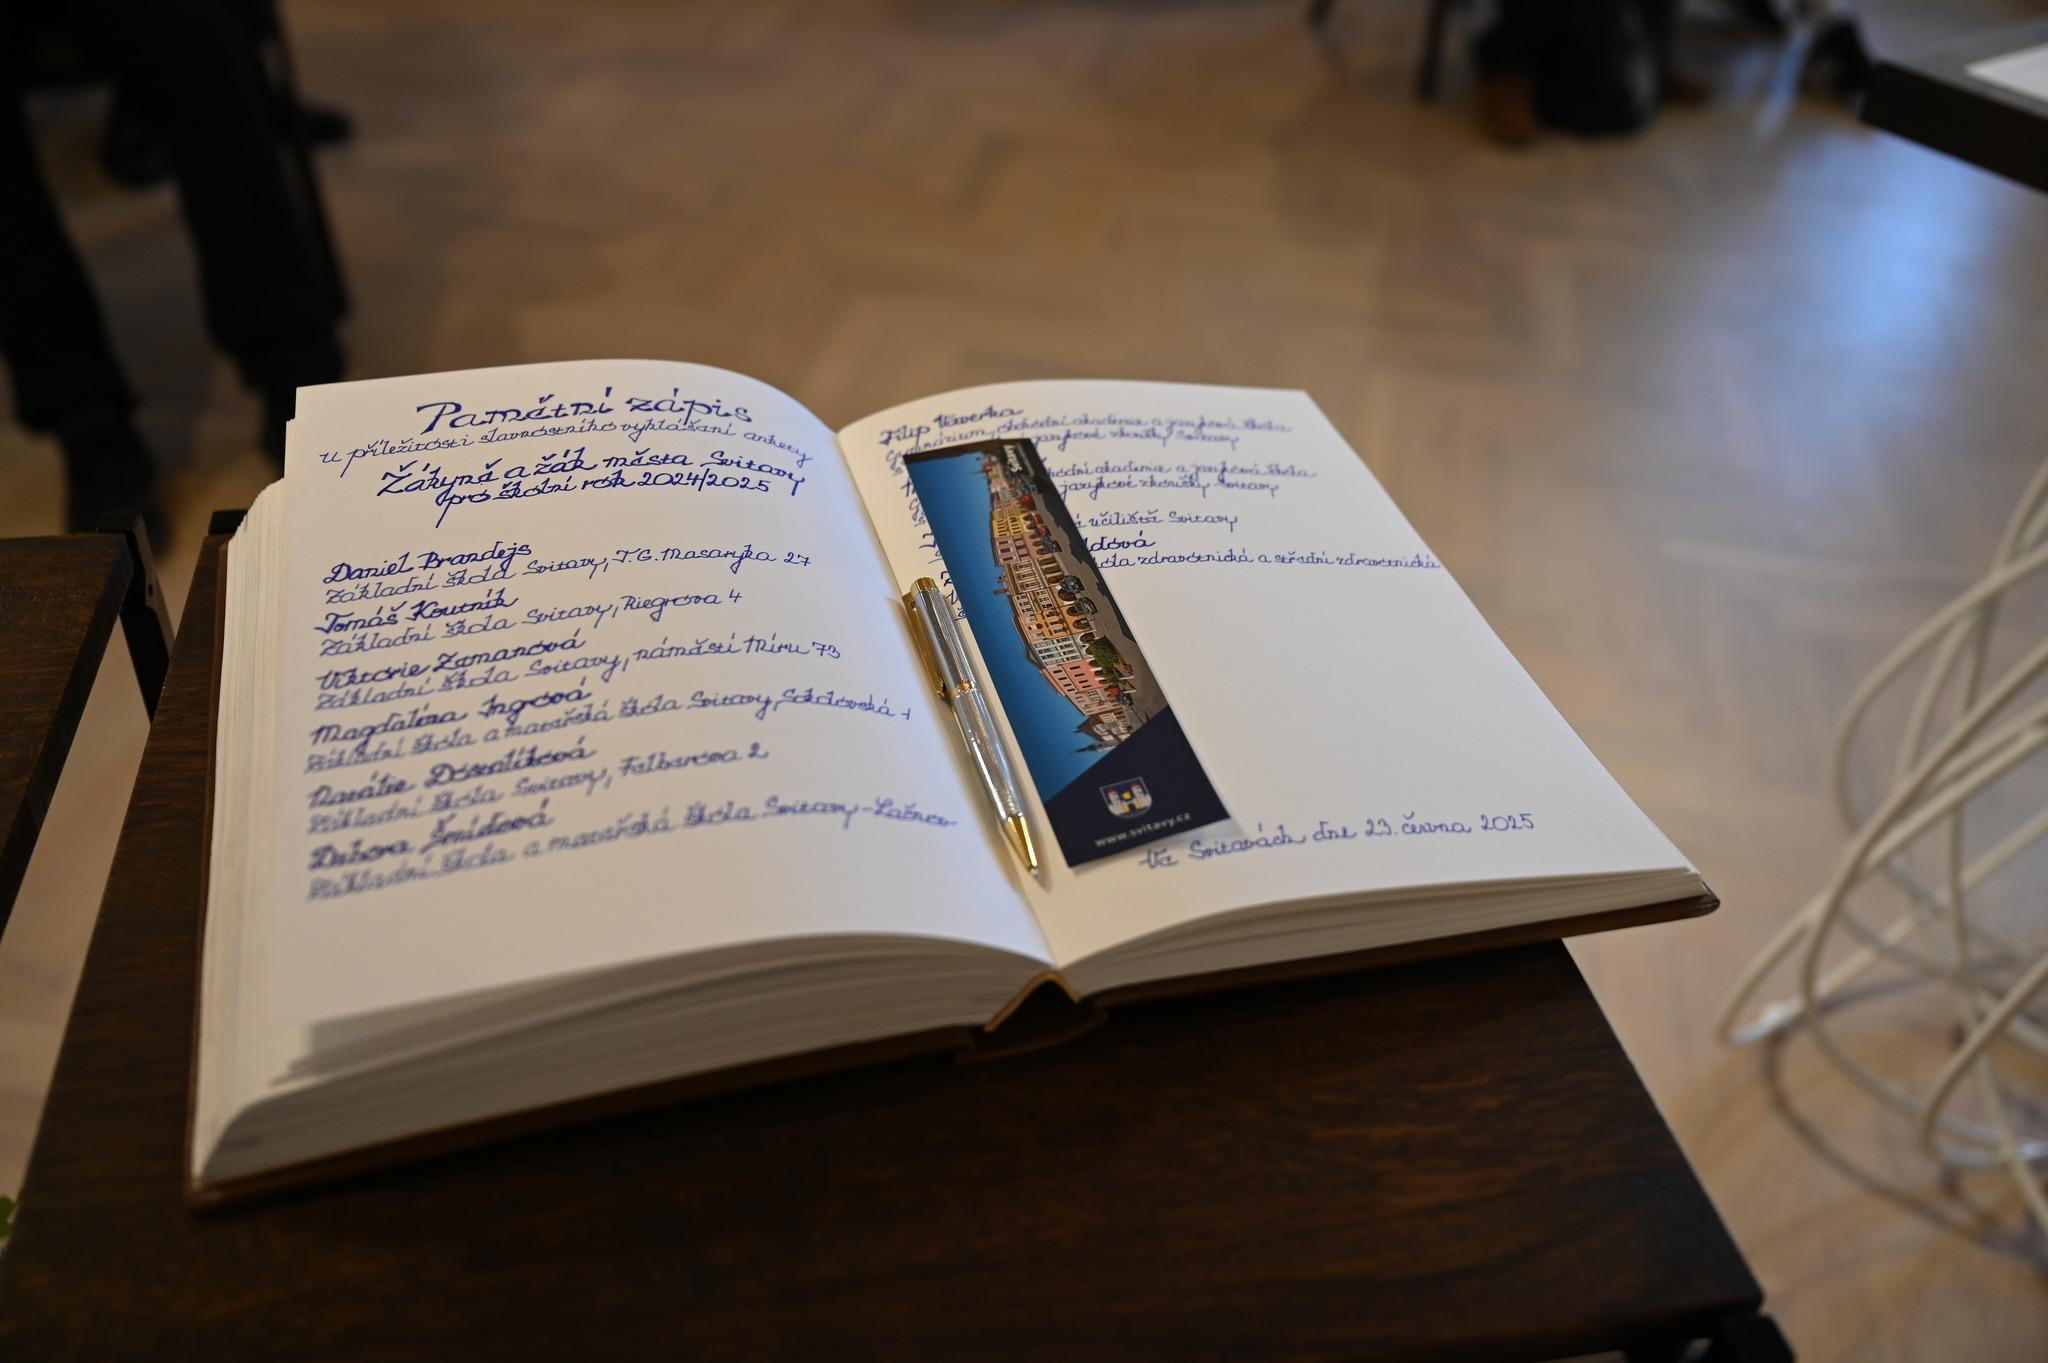 Pamětní zápis
u příležitosti slavnostního vyhlášaní ankety
Žákyně a žák města Svitavy
pro školní rok 2024/2025
Daniel Brandejs
Základní škola Svitavy, T.G. Masaryka 27
Tomáš Koutník
Základní škola Svitavy, Riegrova 4
Viktorie Zemanová
Základní škola Svitavy, náměstí Míru 73
Magdaléna Ingrová
Základní škola a mateřská škola Svitavy, Sokolovská 1
Natálie
Základní škola Svitavy, Felberova 2
Debora Šmídová
Základní škola a mateřská škola Svitavy-Lačnov
Filip Vaverka
obchodní akademie a jazyková škola
jazykové zkoušky Svitavy
obchodní akademie a jazyková škola
jazykové zkoušky Svitavy
učiliště Svitavy
škola zdravotnická a střední zdravotnická
www.svitavy.cz
Ve Svitavách dne 23. června 2025